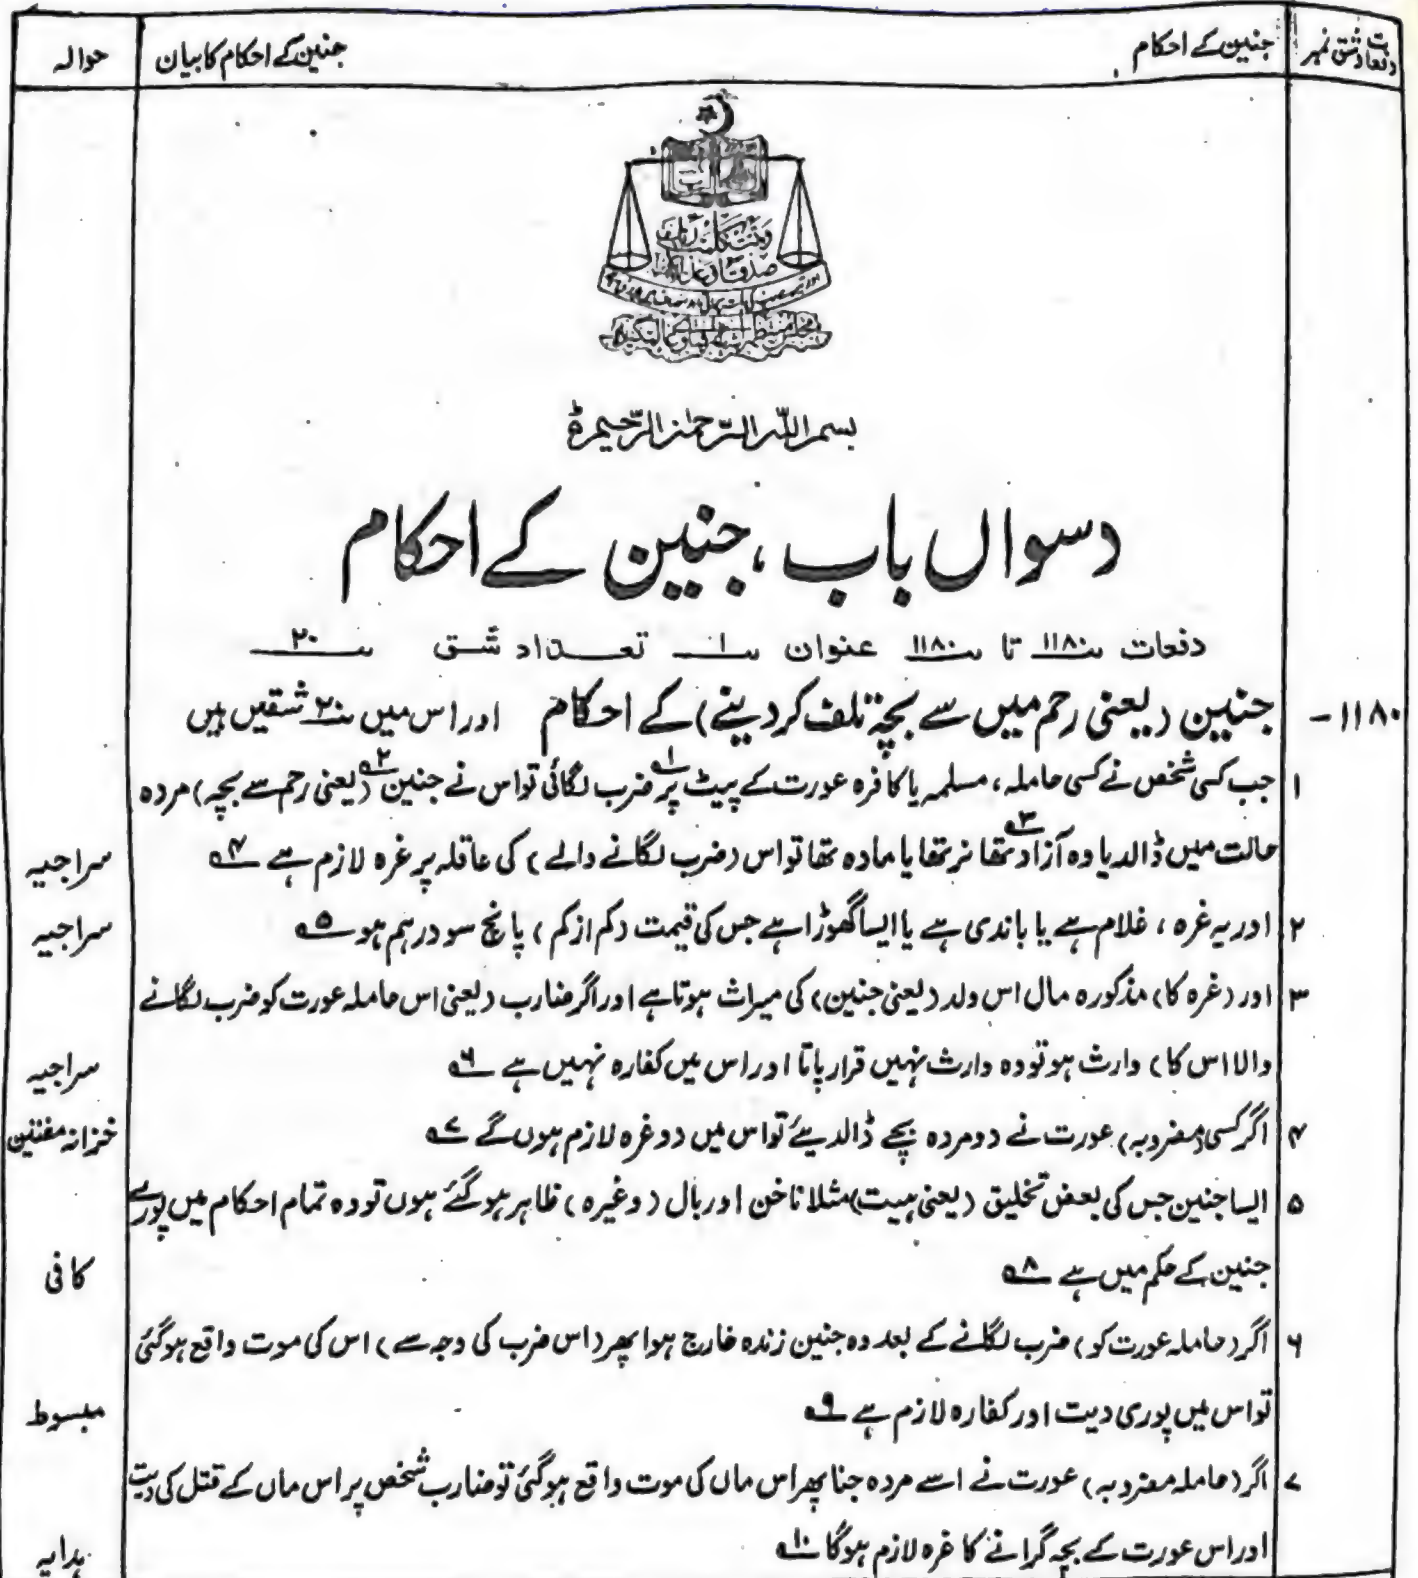 دفعات و شق نمبر جنین کے احکام جنین کے احکام کا بیان حوالہ
وتمت کلمت ربک
صدقا و عدلا
بسم اللہ الرحمٰن الرحیم
دسواں باب ، جنین کے احکام
دفعات ۱۱۸۰ تا ۱۱۸۰ عنوان ۱ تعداد شق ۲۰
۱۱۸۰- جنین (یعنی رحم میں سے بچہ تلف کر دینے) کے احکام اور اس میں ۲۰ شقیں ہیں
۱ جب کسی شخص نے کسی حاملہ، مسلمہ یا کافرہ عورت کے پیٹ پر ۱ ضرب لگائی تو اس نے جنین ۲ (یعنی رحم سے بچہ) مردہ
حالت میں ڈالدیا وہ آزاد ۳ تھا نر تھا یا مادہ تھا تو اس (ضرب لگانے والے) کی عاقلہ پر غرہ لازم ہے ۴ سراجیہ
۲ اور یہ غرہ، غلام ہے یا باندی ہے یا ایسا گھوڑا ہے جس کی قیمت (کم از کم) پانچ سو درہم ہو ۵ سراجیہ
۳ اور (غرہ کا) مذکورہ مال اس ولد (یعنی جنین) کی میراث ہوتا ہے اور اگر ضارب (یعنی اس حاملہ عورت کو ضرب لگانے
والا اس کا) وارث ہو تو وہ وارث نہیں قرار پاتا اور اس میں کفارہ نہیں ہے ۶ سراجیہ
۴ اگر کسی (مضروبہ) عورت نے دو مردہ بچے ڈالدیئے تو اس میں دو غرہ لازم ہوں گے ۷ خزانہ مفتین
۵ ایسا جنین جس کی بعض تخلیق (یعنی ہیت) مثلا ناخن اور بال (وغیرہ) ظاہر ہو گئے ہوں تو وہ تمام احکام میں پورے
جنین کے حکم میں ہے ۸ کافی
۶ اگر (حاملہ عورت کو) ضرب لگانے کے بعد وہ جنین زندہ خارج ہوا پھر (اس ضرب کی وجہ سے) اس کی موت واقع ہو گئی
تو اس میں پوری دیت اور کفارہ لازم ہے ۹ مبسوط
۷ اگر (حاملہ مضروبہ) عورت نے اسے مردہ جنا پھر اس ماں کی موت واقع ہو گئی تو ضارب شخص پر اس ماں کے قتل کی دیت
اور اس عورت کے بچہ گرانے کا غرہ لازم ہوگا ۱۰ ہدایہ